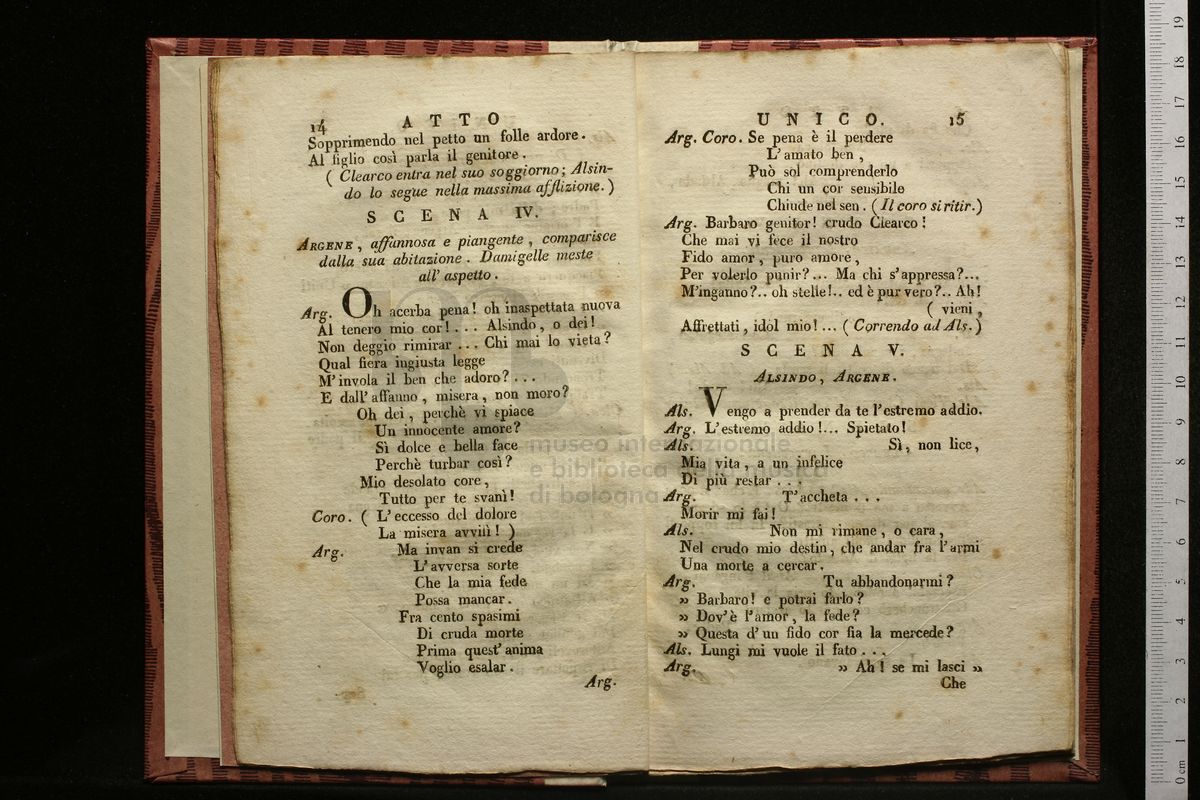 14 ATTO
Sopprimendo nel petto un folle ardore.
Al figlio così parla il genitore.
( Clearco entra nel suo soggiorno; Alsin-
do lo segue nella massima afflizione. )
SCENA IV.
ARGENE, affannosa e piangente, comparisce
dalla sua abitazione. Damigelle meste
all' aspetto.
Arg. Oh acerba pena! oh inaspettata nuova
Al tenero mio cor! . . . Alsindo, o dei!
Non deggio rimirar . . . Chi mai lo vieta?
Qual fiera ingiusta legge
M'invola il ben che adoro? . . .
E dall' affanno, misera, non moro?
Oh dei, perchè vi spiace
Un innocente amore?
Sì dolce e bella face
Perchè turbar così?
Mio desolato core,
Tutto per te svanì!
Coro. ( L'eccesso del dolore
La misera avvilì! )
Arg. Ma invan si crede
L'avversa sorte
Che la mia fede
Possa mancar.
Fra cento spasimi
Di cruda morte
Prima quest' anima
Voglio esalar.
Arg.
UNICO. 15
Arg. Coro. Se pena è il perdere
L'amato ben,
Può sol comprenderlo
Chi un cor sensibile
Chiude nel sen. (Il coro si ritir.)
Arg. Barbaro genitor! crudo Clearco!
Che mai vi fece il nostro
Fido amor, puro amore,
Per volerlo punir?... Ma chi s'appressa?...
M'inganno?.. oh stelle!.. ed è pur vero?.. Ah!
( vieni,
Affrettati, idol mio!... (Correndo ad Als.)
SCENA V.
ALSINDO, ARGENE.
Als. Vengo a prender da te l'estremo addio.
Arg. L'estremo addio!... Spietato!
Als. Sì, non lice,
Mia vita, a un infelice
Di più restar . . .
Arg. T'accheta . . .
Morir mi fai!
Als. Non mi rimane, o cara,
Nel crudo mio destin, che andar fra l'armi
Una morte a cercar.
Arg. Tu abbandonarmi?
» Barbaro! e potrai farlo?
» Dov'è l'amor, la fede?
» Questa d'un fido cor fia la mercede?
Als. Lungi mi vuole il fato . . .
Arg. » Ah! se mi lasci »
Che
museo internazionale
e biblioteca della musica
di bologna
0 cm 1 2 3 4 5 6 7 8 9 10 11 12 13 14 15 16 17 18 19